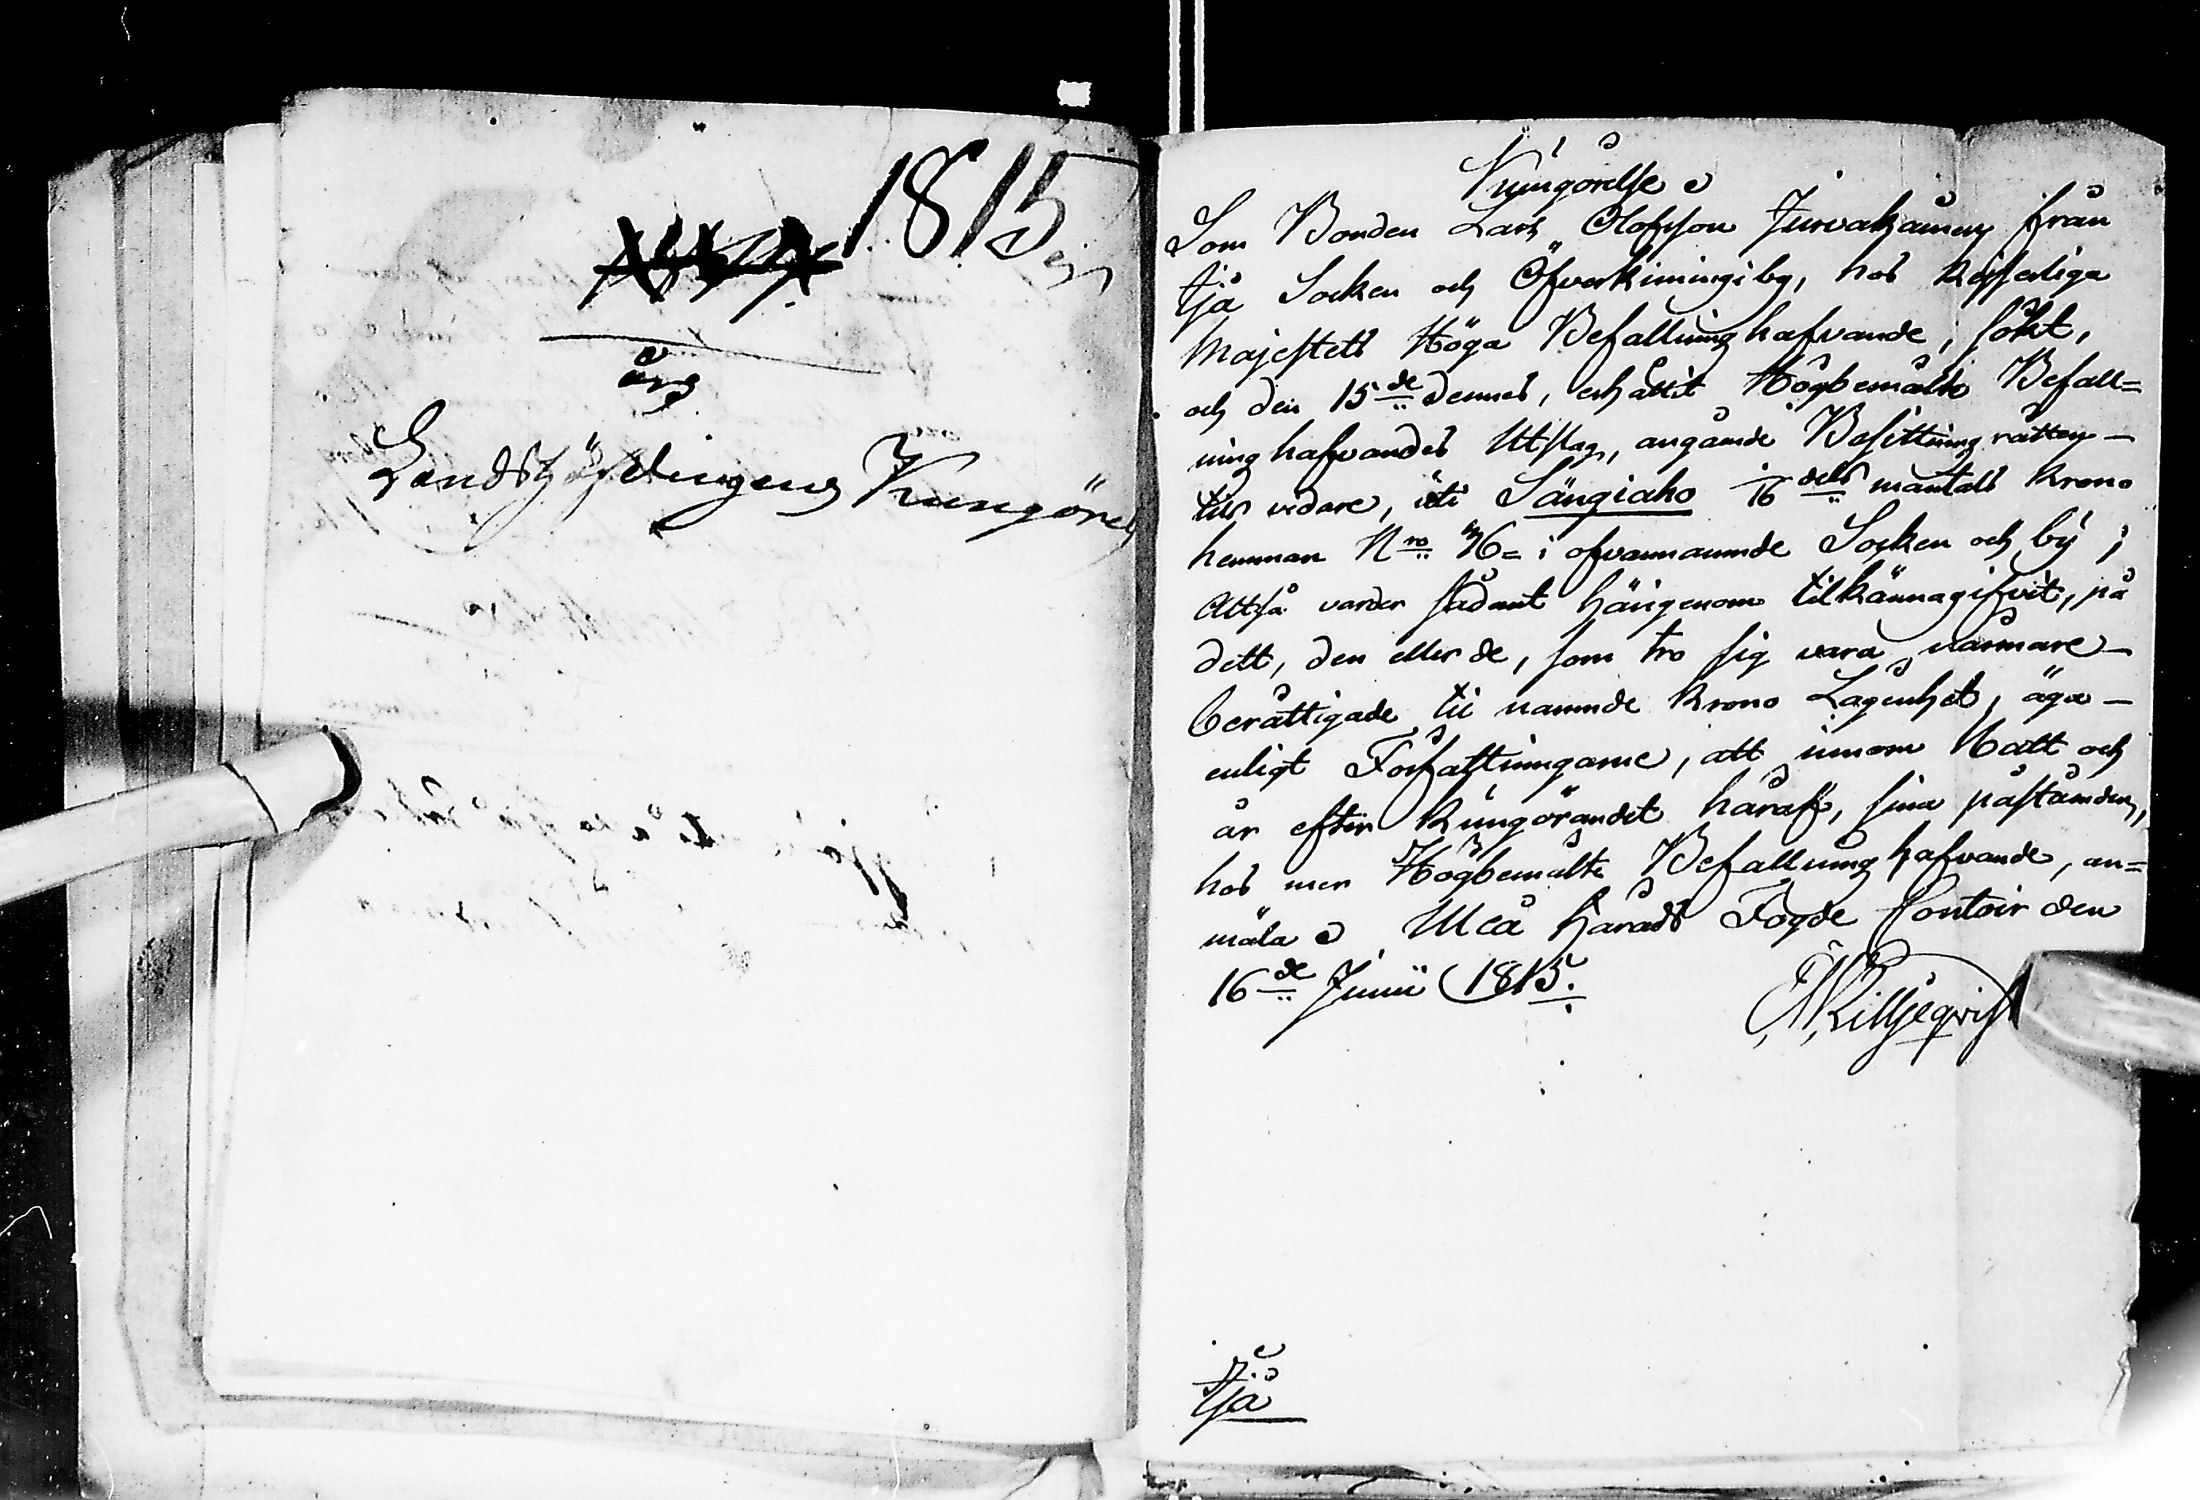 1815
års
Landshöfdingens Kungörel
Kungörelse
Som Bonden Lars Olofsson Jurvakainen från
Ijå Socken och Öfverkimingi by, hos Kejserliga
Majestets Höga Befallninghafvande, sökt,
och den 15de dennes, erhållit Högbemälte Befall=
ninghafvandes Utslag, angående Besittning rätten
tills vidare, uti Sängiaho 1/16 dels mantals Krono
hemman Nro 46 i ofvannämnde Socken och by;
Altså varder sådant härigenom tilkännagifvit, på
dett, den eller de, som tro sig vara närmare
berättigade til nämnde Krono Lägenhet, äga
enligt Författningarne, att innom Natt och
år efter Kungörandet häraf, sina påståenden,
hos mer Högbemälte Befallninghafvande, an=
mäla. Uleå Härads Fogde Contoir den
16de Junii 1815.
Lilljeqvist
Ijå